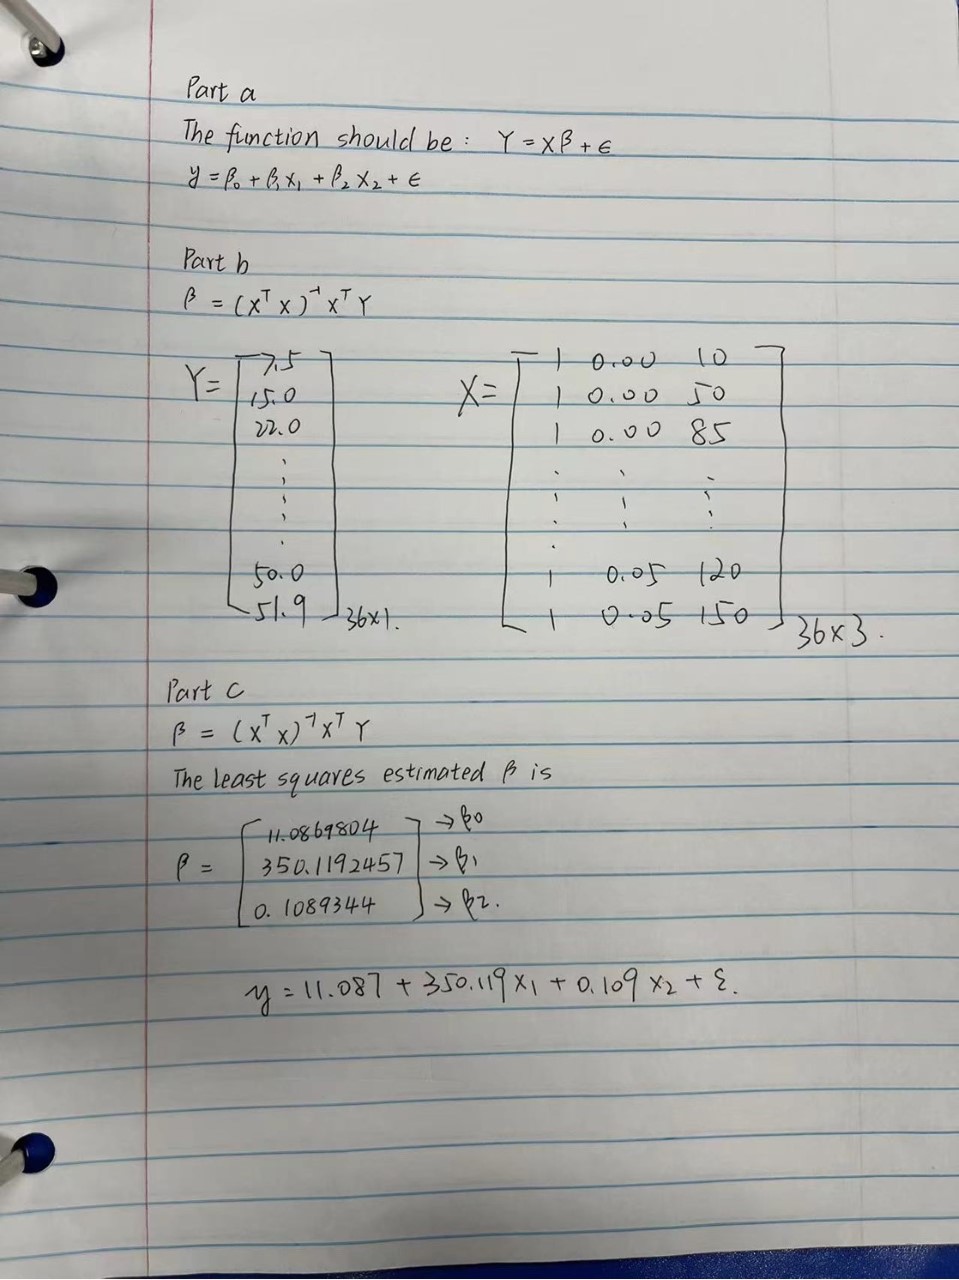 Part a
The function should be: Y = Xβ + ϵ
y = β₀ + β₁x₁ + β₂x₂ + ϵ
Part b
β = (Xᵀ X)⁻¹ Xᵀ Y
Y = [ 7.5 15.0 22.0 ⋮ 50.0 51.9 ] 36×1.
X = [ 1 0.00 10
1 0.00 50
1 0.00 85
⋮ ⋮ ⋮
1 0.05 120
1 0.05 150 ] 36×3.
Part c
β = (Xᵀ X)⁻¹ Xᵀ Y
The least squares estimated β is
β = [ 11.0869804 → β0
350.1192457 → β1
0.1089344 ] → β2.
y = 11.087 + 350.119 x₁ + 0.109 x₂ + ε.